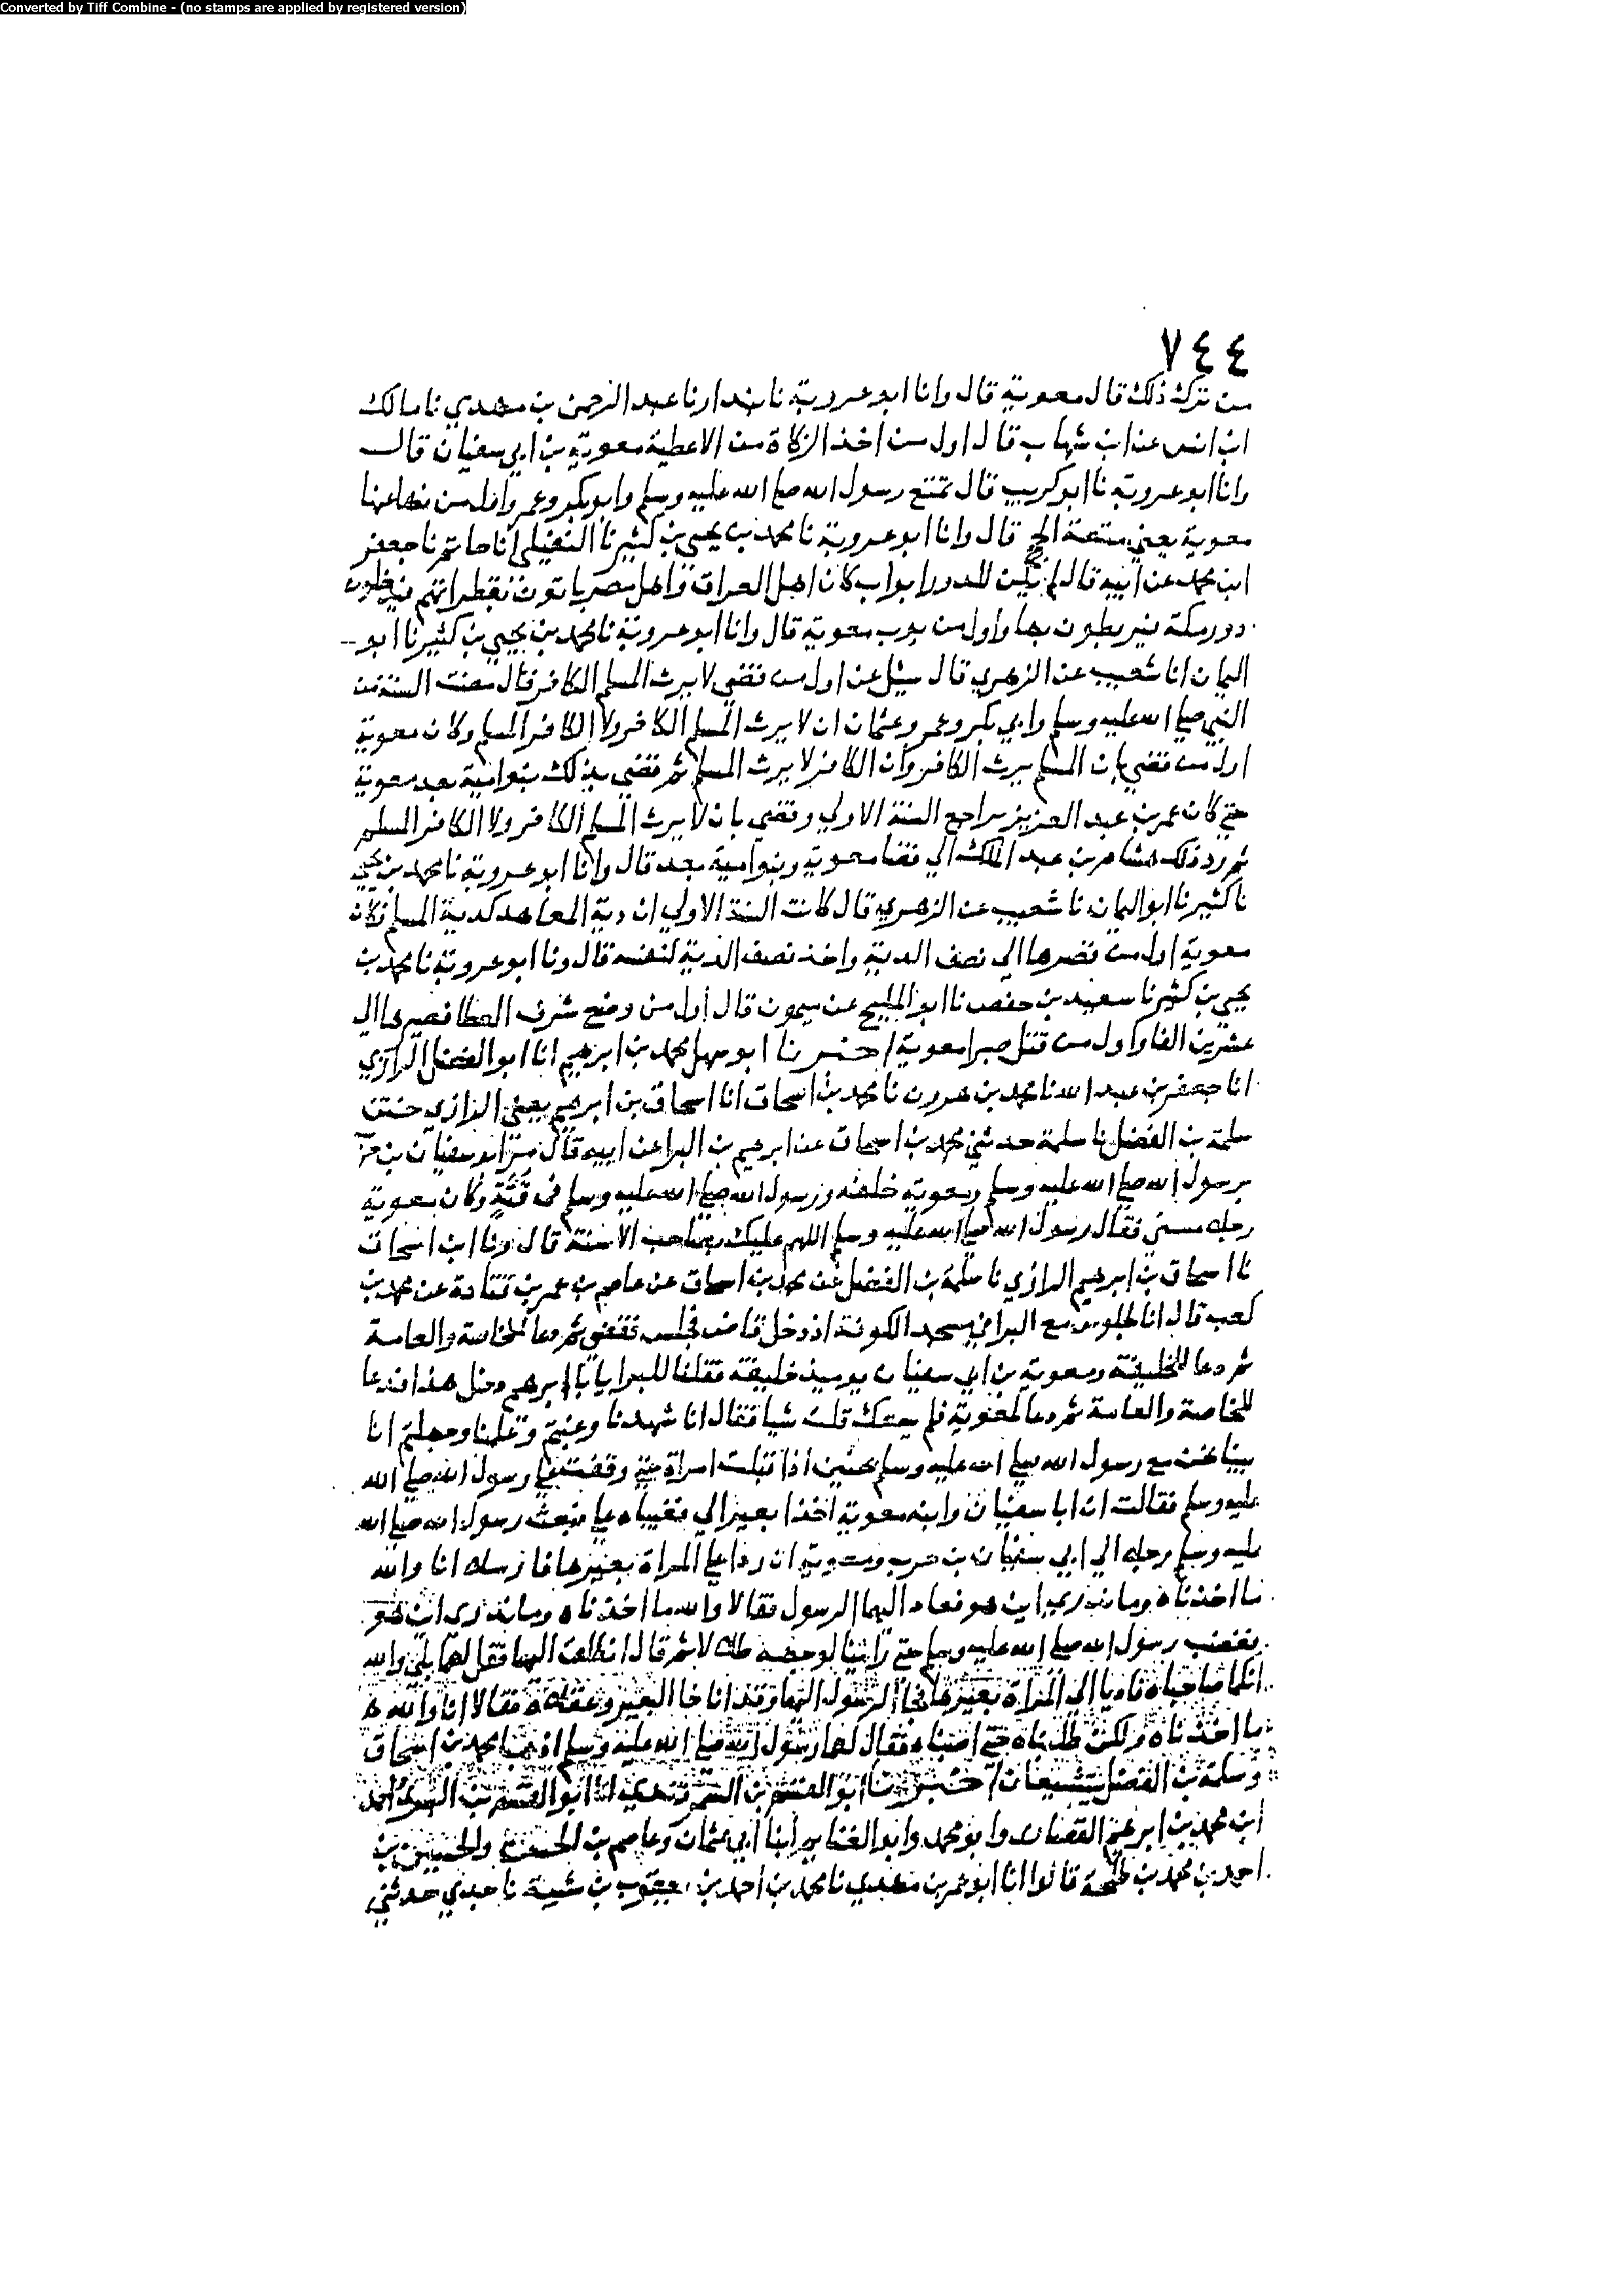 Converted by Tiff Combine - (no stamps are applied by registered version)
٧٤٤
من ترك ذلك قال معوية قال وانا ابو عروبة نا بندار نا عبد الرحمن بن مهدي نا مالك
ابن انس عن ابن شهاب قال اول من اخذ الزكاة من الاعطية معوية بن ابي سفيان قال
وانا ابو عروبة نا ابو كريب قال تمتع رسول الله صلى الله عليه وسلم وابو بكر وعمر واول من نهى عنها
معوية يعني متعة الحج قال وانا ابو عروبة نا محمد بن يحيى بن كثير نا النفيلي نا حاتم نا جعفر
ابن محمد عن ابيه قال لم يكن للدور ابواب كان اهل العراق واهل مصر ياتون بقطراتهم فيدخلون
دور مكة فيربطون بها واول من بوب معوية قال وانا ابو عروبة نا محمد بن يحيي بن كثير نا ابو
اليمان انا شعيب عن الزهري قال سئل عن اول من قضي لا يرث المسلم الكافر قال مضت السنة من
النبي صلي الله عليه وسلم وابي بكر وعمر وعثمان ان لا يرث المسلم الكافر ولا الكافر المسلم وكان معوية
اول من قضي بان المسلم يرث الكافر وان الكافر لا يرث المسلم ثم قضي بذلك بنو امية بعد معوية
حتي كان عمر بن عبد العزيز راجع السنة الاولي وقضي بان لا يرث المسلم الكافر ولا الكافر المسلم
ثم رد ذلك هشام بن عبد الملك الي قضا معوية وبنو امية بعد قال وانا ابو عروبة نا محمد بن يحيي
نا كثير نا ابو اليمان نا شعيب عن الزهري قال كانت السنة الاولي ان دية المعاهد كدية المسلم فكان
معوية اول من قصرها الي نصف الدية واخذ نصف الدية لنفسه قال ونا ابو عروبة نا محمد بن
يحيي بن كثير نا سعيد بن حفص نا ابو المليح عن ميمون قال اول من وضع شرف العطا فصيرها الي
عشرين الفا واول من قتل صبرا معوية اخبرنا ابو سهل محمد بن ابرهيم انا ابو الفضل الرازي
انا جعفر بن عبد الله نا محمد بن هرون نا محمد بن اسحاق انا اسحاق بن ابرهيم يعني الرازي ختن
سلمة بن الفضل نا سلمة حدثني محمد بن اسحاق عن ابرهيم بن البرا عن ابيه قال مر ابو سفيان بن حرب
برسول الله صلي الله عليه وسلم ومعوية خلفه ورسول الله صلي الله عليه وسلم في قبة وكان معوية
رجلا مسته فقال رسول الله صلي الله عليه وسلم اللهم عليك بصاحب الاسنة قال ونا ابن اسحاق
نا اسحاق بن ابرهيم الرازي نا سلمة بن الفضل عن محمد بن اسحاق عن عاصم بن عمر بن قتادة عن محمد بن
كعب قال انا لجلوس مع البرا في مسجد الكوفة اذ دخل قاض فجلس فقضي ثم دعا للخاصة والعامة
ثم دعا للخليفة ومعوية بن ابي سفيان يوميذ خليفة فقلنا للبرا يا با ابرهيم دخل هذا فدعا
للخاصة والعامة ثم دعا لمعوية فلم يسمعك قلت شيا فقال انا شهدنا وغبتم وعلمنا وجهلتم انا
بينا نحن مع رسول الله صلي الله عليه وسلم بحنين اذا قبلت امراة حتي وقفت علي رسول الله صلي الله
عليه وسلم فقالت ان ابا سفيان وابنه معوية اخذا بعيرا لي فغيباه علي فبعث رسول الله صلي الله
عليه وسلم رجلا الي ابي سفيان بن حرب ومعوية ان ردا علي المراة بعيرها فارسلا انا والله
ما اخذناه وما ندري اين هو فعاد اليهما الرسول فقالا والله ما اخذناه وما ندري اين هو
فغضب رسول الله صلي الله عليه وسلم حتي راينا لوجهه ظلالا ثم قال انطلق اليهما فقل لهما بلي والله
انكما صاحباه فاديا الي المراة بعيرها فجا الرسول اليهما وقد اناخا البعير وعقلاه فقالا انا والله
ما اخذناه ولكن طلبناه حتي اصبناه فقال لهما رسول الله صلي الله عليه وسلم اذهبا محمد بن اسحاق
وسلمة بن الفضل يتشيعان اخبرنا ابو القسم بن السمرقندي انا ابو القسم بن البسري احمد
ابن محمد بن ابرهيم القصاري وابو محمد وابو الغنايم ابنا ابي عثمان وعاصم بن الحسن والحسين بن
احمد بن محمد بن طلحة قالوا انا ابو عمر بن مهدي نا محمد بن احمد بن يعقوب بن شيبة نا جدي حدثني